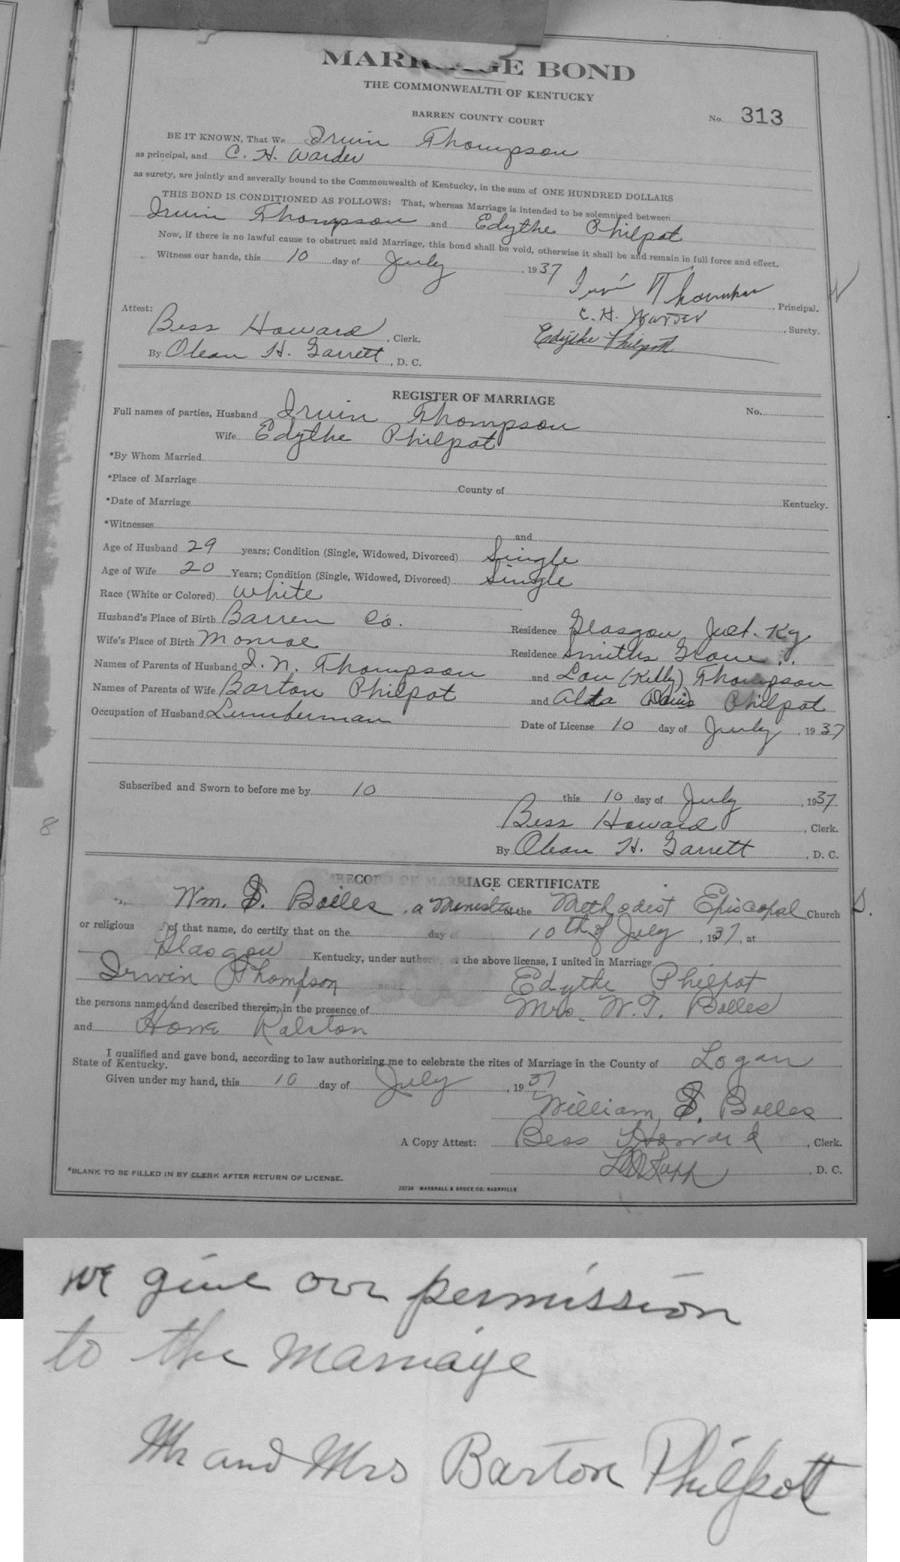 MARRIAGE BOND
THE COMMONWEALTH OF KENTUCKY
BARREN COUNTY COURT
No. 313
BE IT KNOWN, That We Irwin Thompson
as principal, and C. H. Warder
as surety, are jointly and severally bound to the Commonwealth of Kentucky, in the sum of ONE HUNDRED DOLLARS
THIS BOND IS CONDITIONED AS FOLLOWS: That, whereas Marriage is intended to be solemnized between
Irwin Thompson and Edythe Philpot
Now, if there is no lawful cause to obstruct said Marriage, this bond shall be void, otherwise it shall be and remain in full force and effect.
Witness our hands, this 10 day of July, 1937
Thompson, Principal.
C. H. Warder, Surety.
Edythe Philpott
Attest:
Bess Howard, Clerk.
By Olean H. Garrett, D. C.
REGISTER OF MARRIAGE
No.
Full names of parties, Husband Irwin Thompson
Wife Edythe Philpot
*By Whom Married
*Place of Marriage County of Kentucky.
*Date of Marriage
*Witnesses and
Age of Husband 29 years; Condition (Single, Widowed, Divorced) Single
Age of Wife 20 Years; Condition (Single, Widowed, Divorced) Single
Race (White or Colored) White
Husband's Place of Birth Barren Co. Residence Glasgow Ky
Wife's Place of Birth Monroe Residence Smiths Grove
Names of Parents of Husband I. N. Thompson and Lou (Kelly) Thompson
Names of Parents of Wife Barton Philpot and Alta Davis Philpot
Occupation of Husband Lumberman Date of License 10 day of July, 1937
Subscribed and Sworn to before me by 10 this 10 day of July, 1937
Bess Howard, Clerk.
By Olean H. Garrett, D. C.
8
RECORD OF MARRIAGE CERTIFICATE
Wm. S. Bolles, a Minister of the Methodist Episcopal Church S.
or religious of that name, do certify that on the day of 10th of July, 1937, at
Glasgow Kentucky, under authority of the above license, I united in Marriage
Irwin Thompson and Edythe Philpot
the persons named and described therein, in the presence of Mrs. W. S. Bolles
and Howe Ralston
I qualified and gave bond, according to law authorizing me to celebrate the rites of Marriage in the County of Logan
State of Kentucky.
Given under my hand, this 10 day of July, 1937
William S. Bolles
A Copy Attest: Bess Howard, Clerk.
D. C.
*BLANK TO BE FILLED IN BY CLERK AFTER RETURN OF LICENSE.
MARSHALL & BRUCE CO. NASHVILLE
we give our permission
to the marriage
Mr and Mrs Barton Philpott